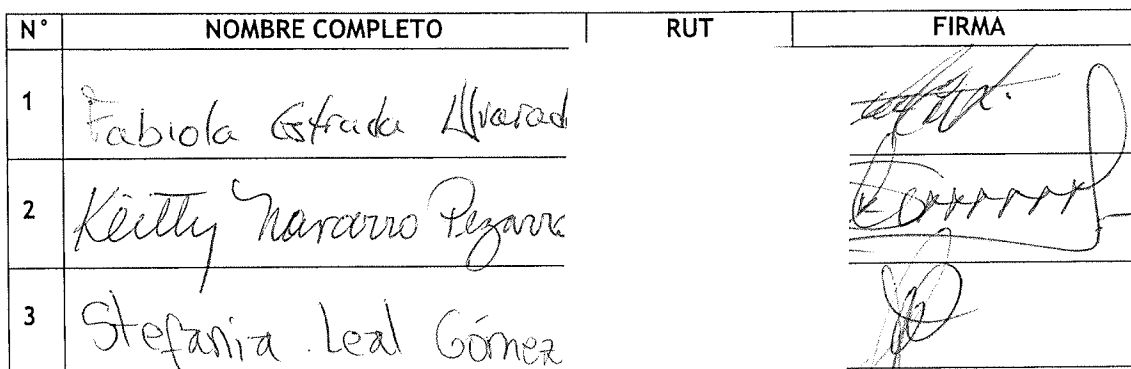 N° NOMBRE COMPLETO RUT FIRMA
1 Fabiola Estrada Alvarad
2 Keitty Navarro Pezarro
3 Stefania Leal Gómez